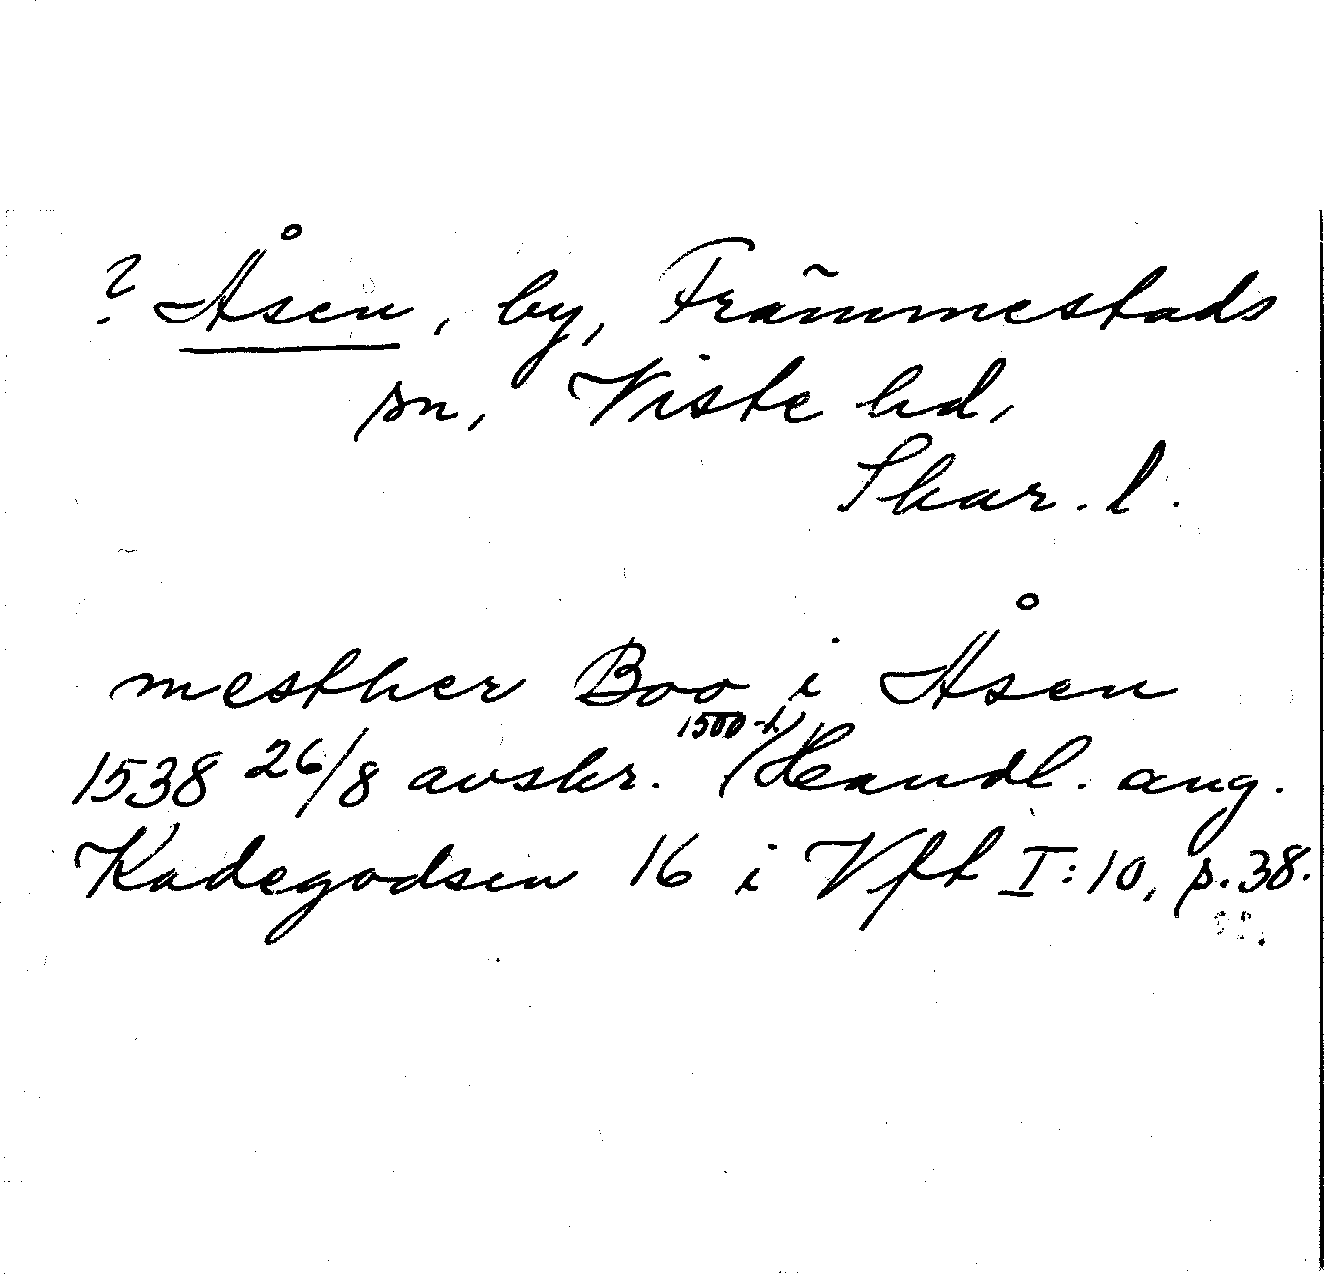 ? Åsen, by, Främmestads
sn, Viste hd,
Skar. l.
mesther Boo i Åsen
1538 26/8 avskr. 1500-t (Handl. ang.
Kadegodsen 16 i Vft I:10, p. 38.